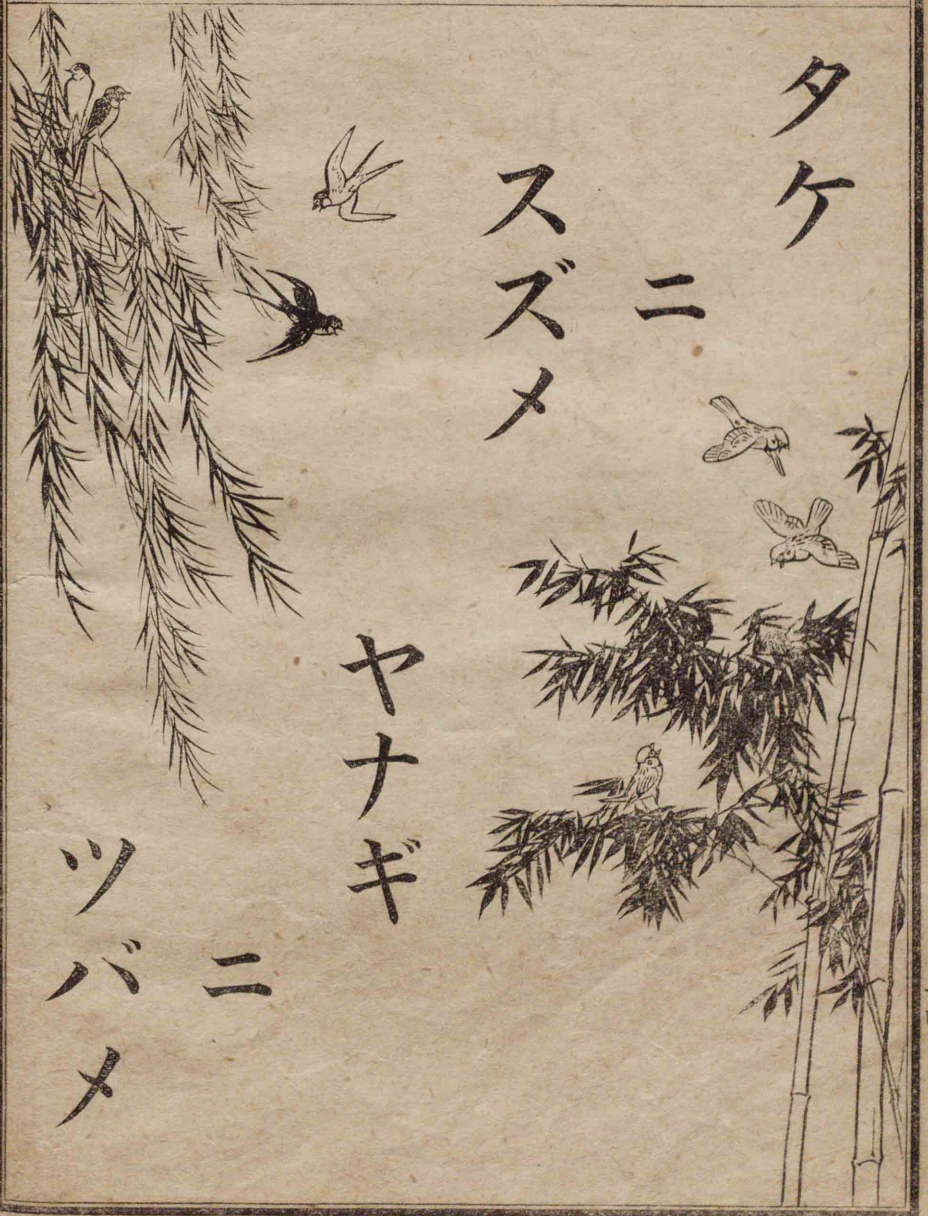 タケ
ニ
スズメ
ヤナギ
ニ
ツバメ